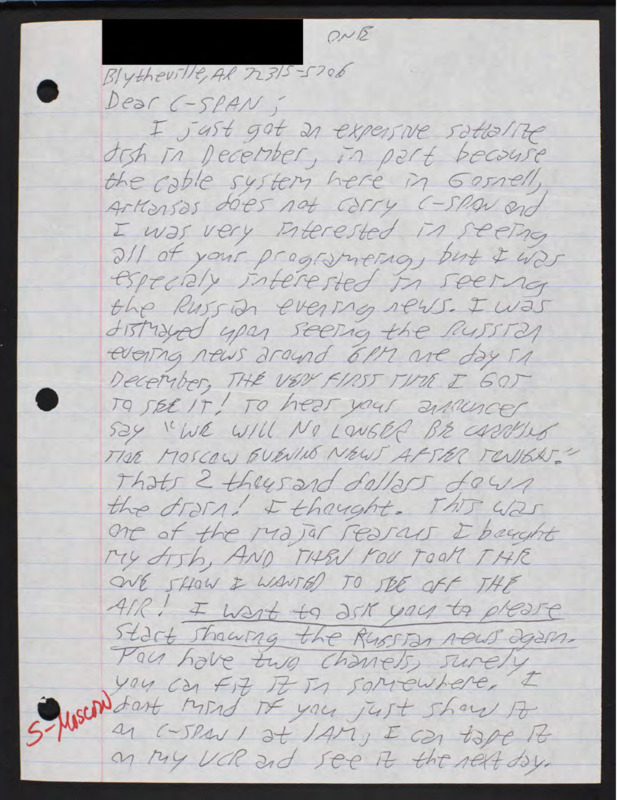 ONE
Blytheville, AR 72315-5706
Dear C-SPAN;
I just got an expensive sattalite
dish in December, in part because
the cable system here in Gosnell,
Arkansas does not carry C-SPAN and
I was very interested in seeing
all of your programering, but I was
especialy interested in seering
the Russian evening news. I was
dismayed upon seeing the Russian
evening news around 6PM one day in
December, THE VERY FIRST TIME I GOT
TO SEE IT! To hear your announcer
say "WE WILL NO LONGER BE CARRYING
THE MOSCOW EVENING NEWS AFTER TONIGHT."
Thats 2 thousand dollars down
the drain! I thought. This was
one of the major reasons I bought
my dish, AND THEN YOU TOOK THE
ONE SHOW I WANTED TO SEE OFF THE
AIR! I want to ask you to please
start showing the Russian news again.
You have two channels, surely
you can fit it in somewhere. I
dont mind if you just show it
on C-SPAN 1 at 1AM, I can tape it
on my VCR and see it the next day.
S-Moscow